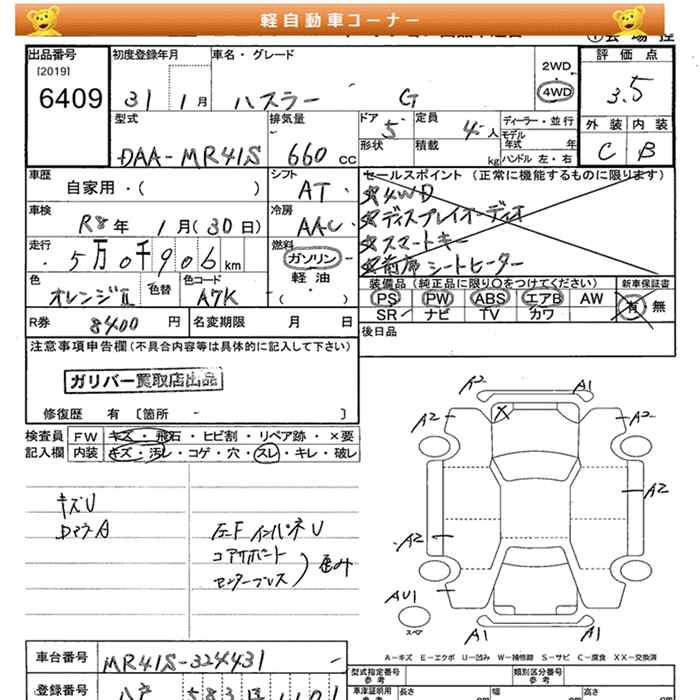 軽自動車コーナー
出品番号 初度登録年月 車名・グレード 2WD 評価点
[2019]
6409 31 1月 ハスラー G 4WD 3.5
型式 排気量 ドア 5 定員 4人 ディーラー・並行 外装 内装
モデル年式 年
DAA-MR41S 660 cc 形状 積載 kg ハンドル 左・右 C B
車歴 シフト セールスポイント（正常に機能するものに限ります）
自家用・( ) AT 4WD
車検 冷房 ディスプレイオーディオ
R8年 1月(30日) AAC スマートキー
走行 燃料 前席シートヒーター
5万0千906km ガソリン
軽油
( )
装備品（純正品に限り○をつけてください） 新車保証書
色 色替 色コード PS PW ABS エアB AW 有 無
オレンジⅡ A7K SR ナビ TV カワ
R券 8400 円 名変期限 月 日 後日品
注意事項申告欄（不具合内容等は具体的に記入して下さい）
ガリバー買取店出品
修復歴 有 [箇所 - ]
検査員 FW キズ・飛石・ヒビ割・リペア跡・×要
記入欄 内装 キズ・汚レ・コゲ・穴・スレ・キレ・破レ
A2 A1
A2 X A2
A2
A2
AU1
スペア
A1 A1
キズU
左Fインパネ U
コアサポート
センターブレス ) 歪み
A-キズ E-エクボ U-凹み W-補修跡 S-サビ C-腐食 XX-交換済
車台番号 MR41S-324431
型式指定番号 参考 類別区分番号 参考
登録番号 車庫証明用 参考 長さ cm 幅 cm 高さ cm